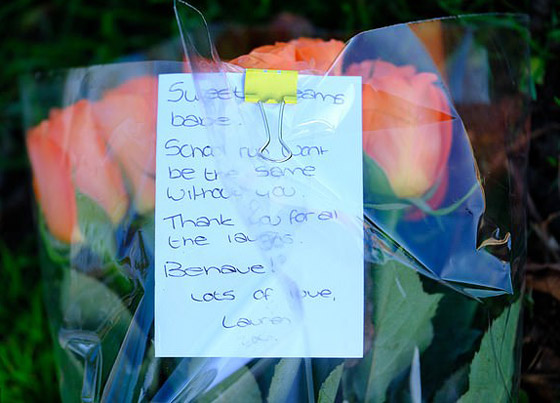 Sweet
babe.
School run wont
be the same
without you.
Thank you for all
the laughs.
Behave!
Lots of love,
Lauren